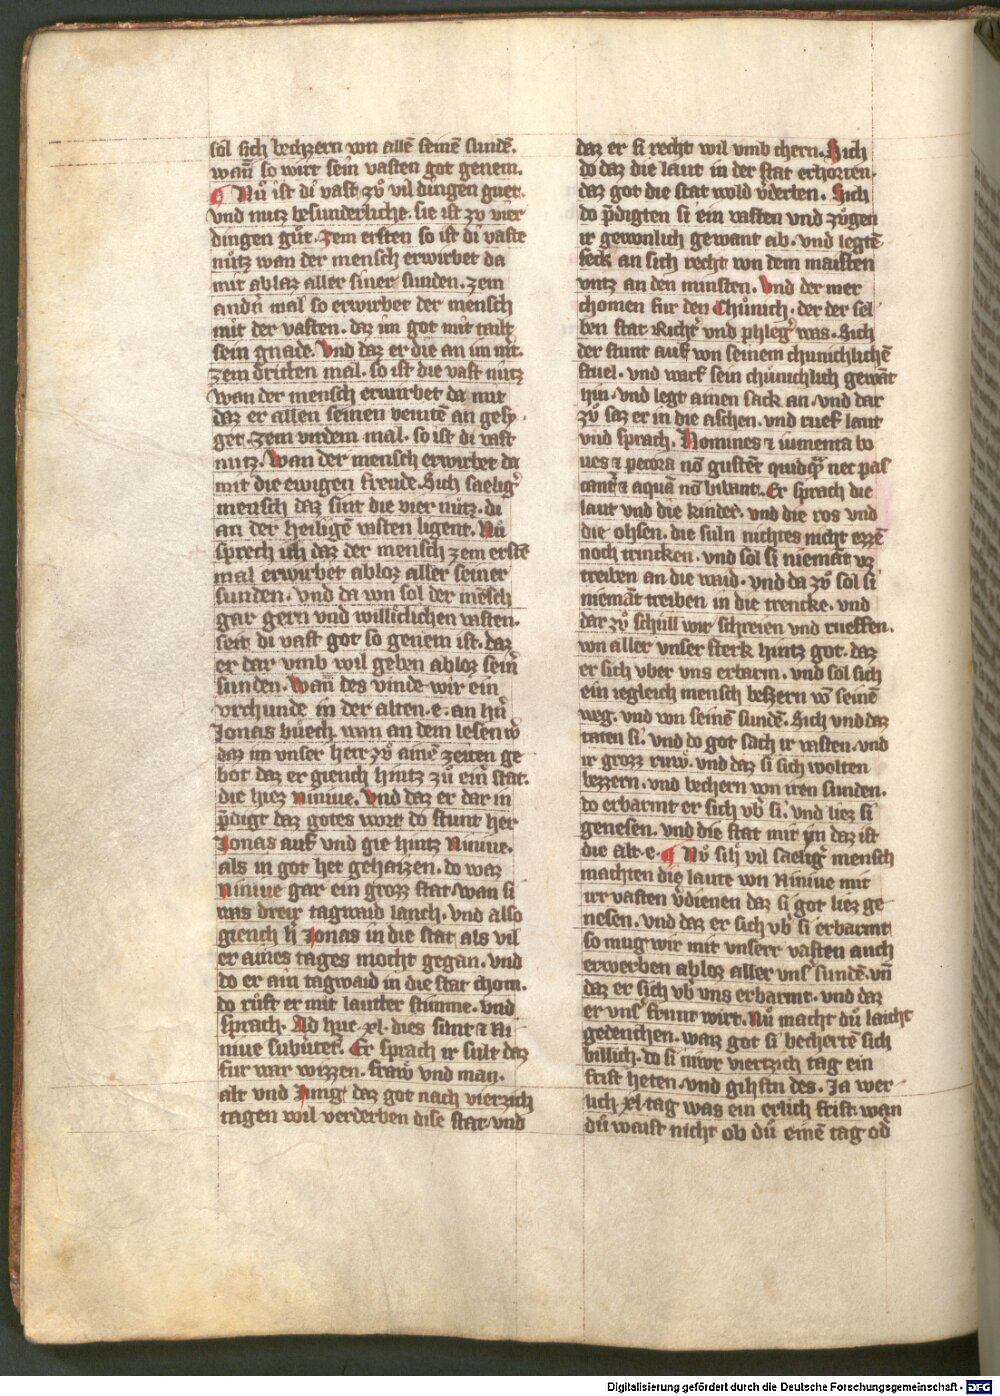 sol sich bechzern von allē seinē sundē.
wañ so wirt sein vasten got genem.
Nů ist di vast zů vil dingen guet.
vnd nutz besunderliche. sie ist zv vier
dingen gůt. Zem ersten so ist di vaste
nůtz wan der mensch erwirbet da
mit ablaz aller siner sunden. Zem
andn̄ mal so erwirbet der mensch
mit der vasten. daz im got mit tailt
sein gnade. Vnd daz er die an im mt.
Zem dritten mal. so ist die vast nůtz
wan der mensch erwirbet da mit
daz er allen seinen veintē an gesy
get. Zem virdem mal. so ist di vast
nutz. Wan der mensch erwirbet da
mit die ewigen freude. Sich saelig͛
mensch daz sint die vier nůtz. di
an der heiligē vasten ligent. Nů
sprech ich daz der mensch zem erstē
mal erwirbet abloz aller seiner
sunden. vnd da von sol der mēsch
gar gern vnd willichlichen vasten.
seit di vast got so genem ist. daz
er dar vmb wil geben abloz sein͛
sunden. Wañ des vinde wir ein
vrchunde in der alten .e. an h͛n
Jonas bůech. wan an dem lesen w͛
daz im vnser herr zů ainē zeiten ge
bot daz er giench hintz zů ein͛ stat.
die hiez Niniue. Vnd daz er dar in
p̄digt daz gotes wort do stunt her
Jonas auf vnd gie hintz Niniue.
als in got het gehaizen. do waz
Niniue gar ein grozz stat wan si
was dreir tagwaid lanch. vnd also
giench h͛ Jonas in die stat als vil
er aines tages mocht gegan. vnd
do er ain tagwaid in die stat chom.
do růft er mit lautler stimme. vnd
sprach. Ad huc .xl. dies sunt ⁊ Ni
niue subūtet͛. Er sprach ir sult daz
fur war wizzen. fraw vnd man.
alt vnd Jung daz got nach vierzich
tagen wil verderben dise stat vnd
daz er si recht wil vmb chern. Sich
do daz die laut in der stat erhorten.
daz got die stat wold v͛derben. Sich
do p̄digten si ein vasten vnd zůgen
ir gewonlich gewant ab. vnd legtē
seck an sich recht von dem maisten
vntz an den minsten. Vnd der mer
chomen fur den Chůnich. der der sel
ben stat Richt͛ vnd phleg͛ was. Sich
der stunt auf von seinem chunichlichē
stuel. vnd warf sein chůnichlich gewāt
hin. vnd legt ainen sack an. vnd dar
zů saz er in die aschen. vnd ruef laut
vnd sprach. Homines ⁊ iumenta bo
ues ⁊ pecora nō gustēt quidqᷓ nec pas
cant͛ ⁊ aquā nō bibant. Er sprach die
laut vnd die kinder. vnd die ros vnd
die ohsen. die suln nichtes nicht ezzē
noch trincken. vnd sol si niemāt vz
treiben an die waid. vnd da zů sol si
niemāt treiben in die trencke. vnd
dar zů schull wir schreien vnd rueffen.
von aller vnser sterk hintz got. daz
er sich vber vns erbarm. vnd sol sich
ein iegleich mensch beszern vō seinē
weg. vnd von seinē sundē. Sich vnd daz
taten si. vnd do got sach ir vasten. vnd
ir grozz ruw. vnd daz si sich wolten
bezzern. vnd bechern von iren sunden.
do erbarmt er sich vb͛ si. vnd liez si
genesen. vnd die stat mit yn daz ist
die alt .e. Nů sih vil saelig͛ mensch
machten die laute von Niniue mit
irr vasten v͛dienen daz si got liez ge
nesen. vnd daz er sich vb͛ si erbarmt
so mug wir mit vnserr vasten auch
erwerben abloz aller vns͛ sundē. vn̄
daz er sich vb͛ vns erbarmt. vnd daz
er vns͛ frunt wirt. Nů macht dů laicht
gedenchen. waz got si becherte sich
billich. do si niwr viertzich tag ein
frist heten. vnd gih ftu des. Ja wer
lich .xl. tag was ein erlich frist wan
dů waist nicht ob dů einē tag od͛
Digitalisierung gefördert durch die Deutsche Forschungsgemeinschaft - DFG